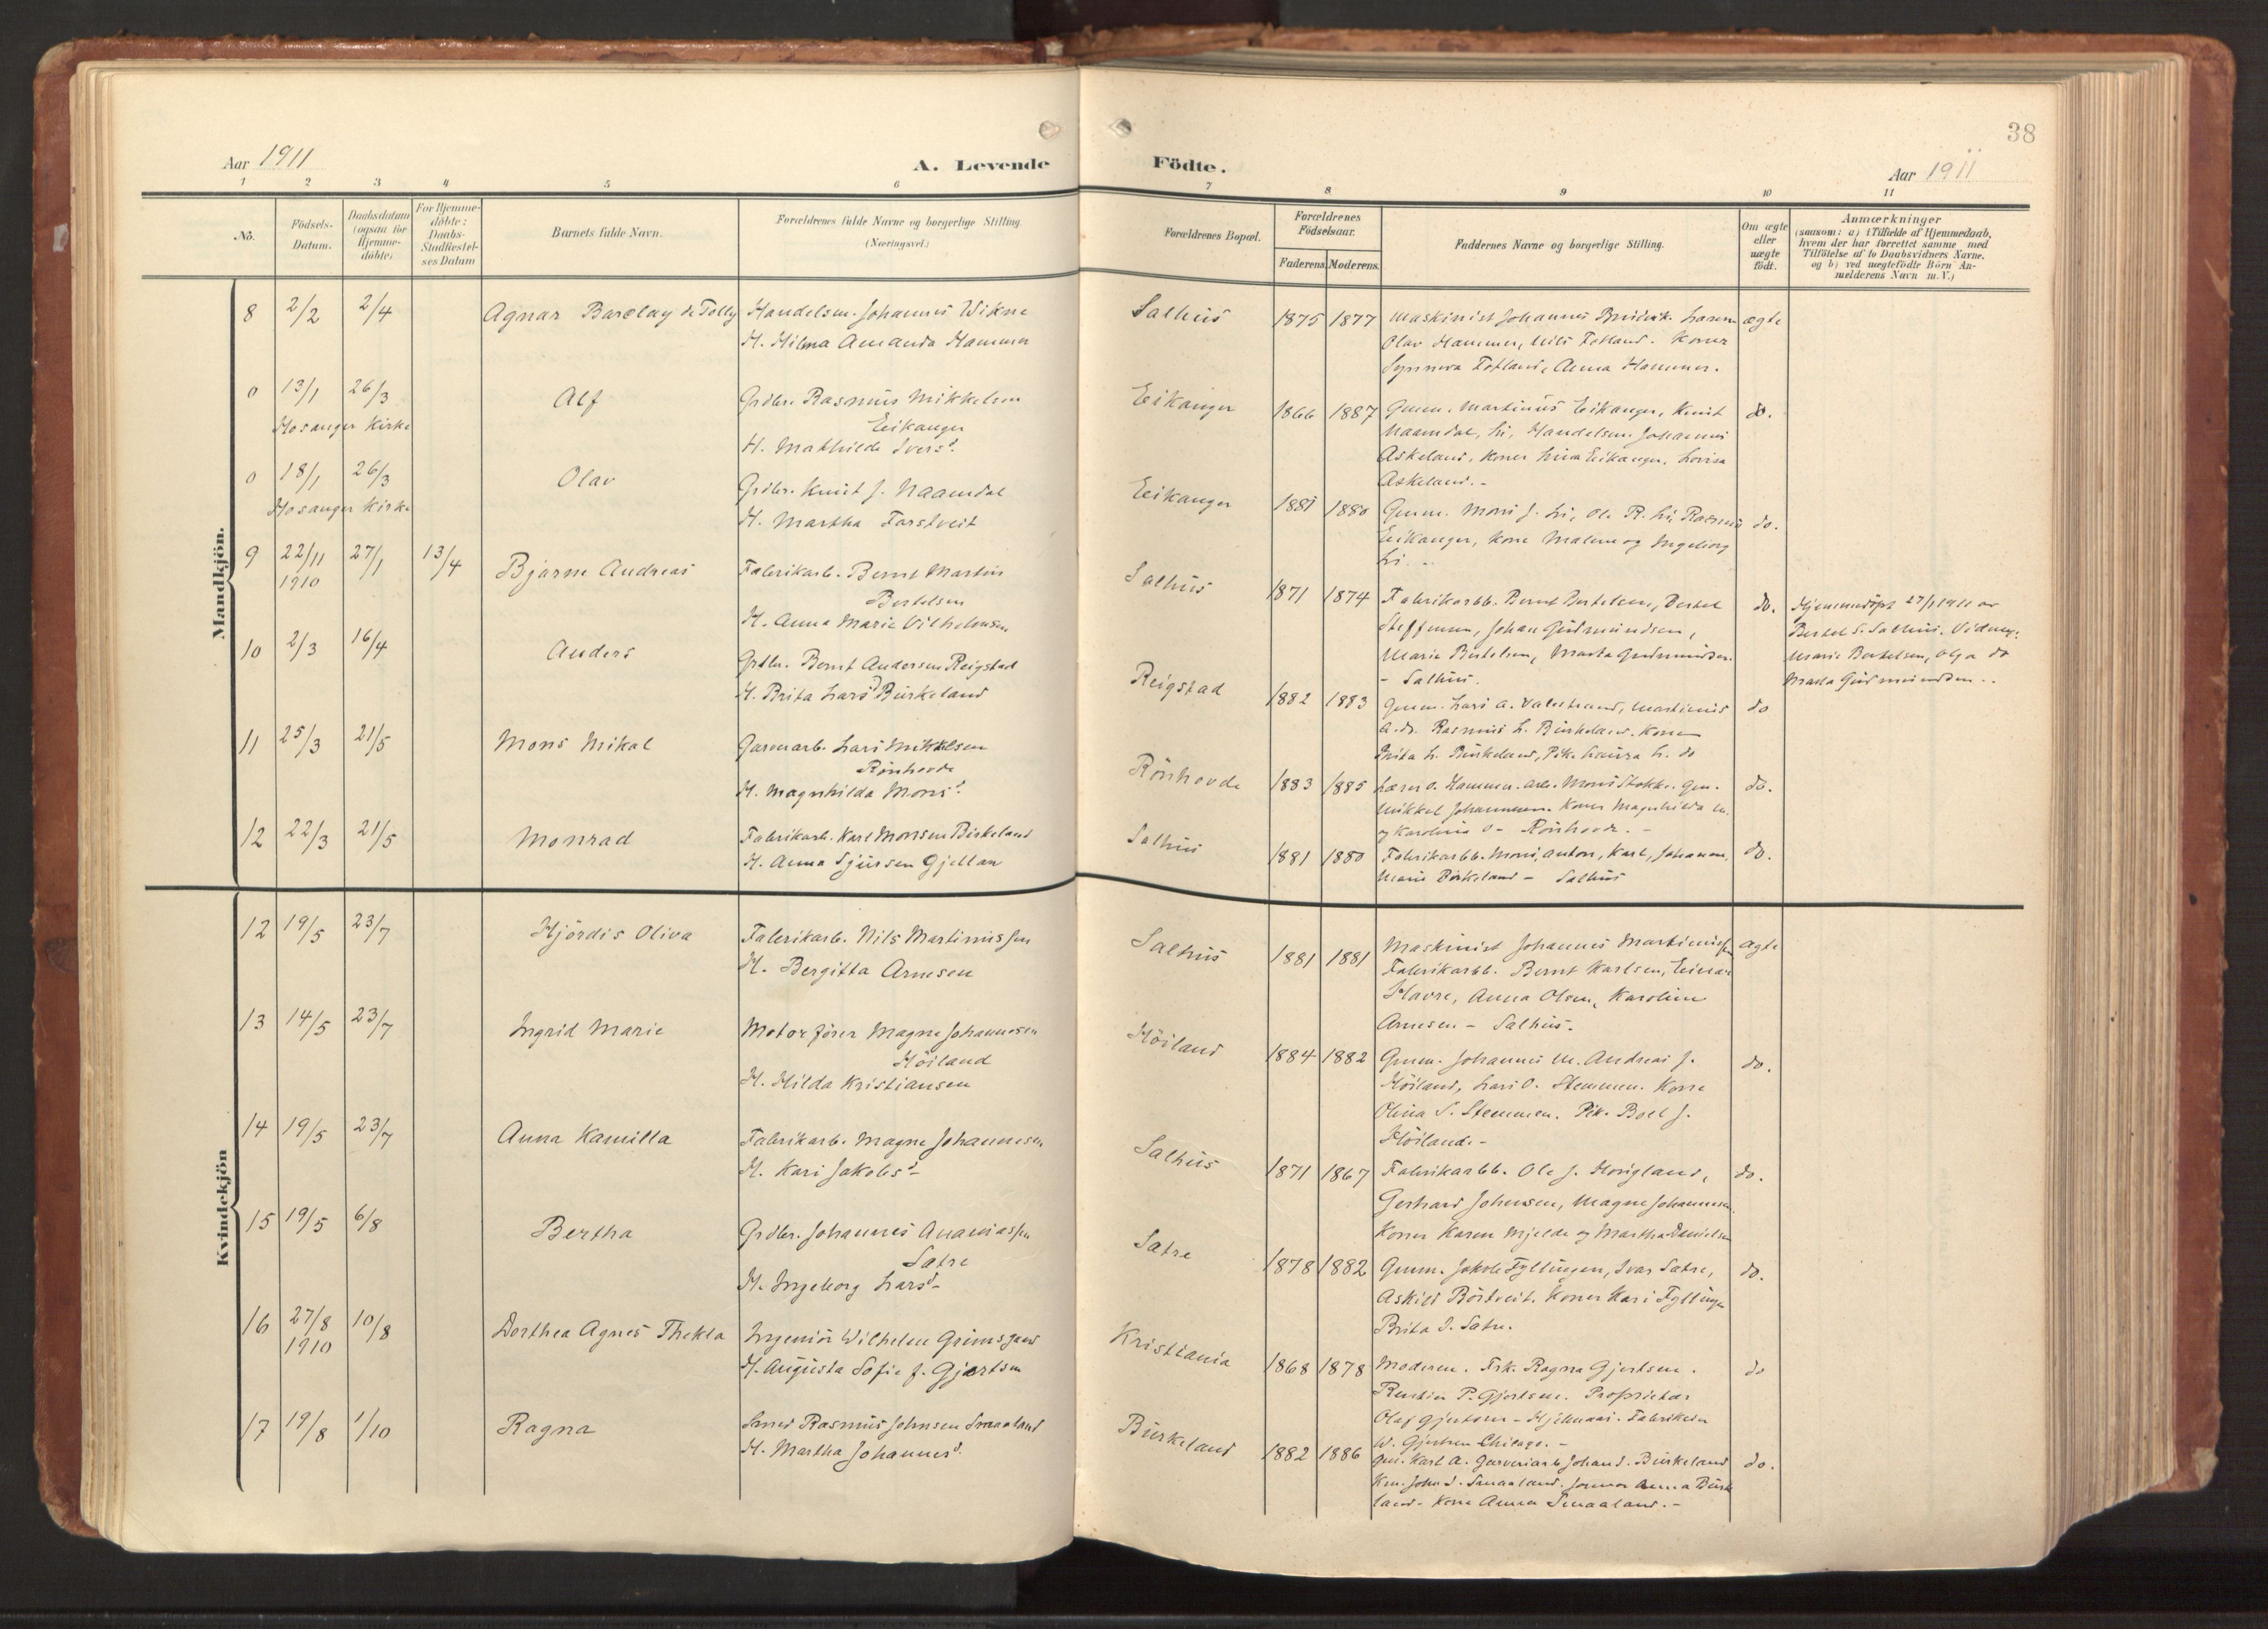 38
Aar 1911
A. Levende
Födte.
Aar 1911
1 2 3 4 5 6 7 8 9 10 11
No.
Födsels-
Datum.
Daabsdatum
(ogsaa for
Hjemme-
döbte)
For Hjemme-
döbte:
Daabs-
Stadfæstel-
ses Datum
Barnets fulde Navn.
Forældrenes fulde Navne og borgerlige Stilling.
(Næringsvei.)
Forældrenes Bopæl.
Forældrenes
Födselsaar.
Faderens. Moderens.
Faddernes Navne og borgerlige Stilling.
Om ægte
eller
uægte
födt.
Anmærkninger
(saasom: a) i Tilfælde af Hjemmedaab,
hvem der har forrettet samme med
Tilföielse af to Daabsvidners Navne,
og b) ved uægtefödte Börn An-
melderens Navn m. V.)
Mandkjön.
8 2/2 2/4 Agnar Barclay de Tolly Handelsm. Johannes Wikne
H. Hilma Amanda Hammer
Salhus 1875 1877 Maskinist Johannes Larsen ægte
Olav Hammer, Nils Fotland. Koner
Synneva Fotland, Anna Hammer.
0 13/1 26/3 Alf Grdbr. Rasmus Mikkelsen
Hosanger Kirke Eikanger
H. Mathilde Iversd.
Eikanger 1866 1887 Gmm. Martinus Eikanger, Knut do.
Naamdal, Li, Handelsm. Johannes
Askeland, Koner Lina Eikanger, Lovisa
Askeland. -
0 18/1 26/3 Olav Grdbr. Knut J. Naamdal
Hosanger Kirke
H. Martha Farstveit
Eikanger 1881 1880 Gmm. Mons J. Li, Ole R. Li, Rasmus do.
Eikanger, Kone Malene og Ingeborg
Li. -
9 22/11 27/1 13/4 Bjarne Andreas Fabrikarb. Bernt Martin
1910 Bertelsen
H. Anna Marie Vilhelmsen
Salhus 1871 1874 Fabrikarbb. Bernt Bertelsen, Bertel do. Hjemmedöpt 27/1 1911 av
Steffensen, Johan Gudmundsen, Bertel S. Salhus. Vidner:
Marie Bertelsen, Marta Gudmundsen Marie Bertelsen, Olga do
- Salhus. Marta Gudmundsen -.
10 2/3 16/4 Anders Grdbr. Bernt Andersen Reigstad
H. Brita Larsd. Birkeland
Reigstad 1882 1883 Gmm. Lars A. Valestrand, Martinus do
A. do. Rasmus L. Birkeland. Kone
Brita L. Birkeland, Pik. Laura L. do
11 25/3 21/5 Mons Mikal Garverarb. Lars Mikkelsen
Rönhovde
H. Magnhilda Monsd.
Rönhovde 1883 1885 Lærer O. Hammer. Arb. Mons Stokke. Gm. do.
Mikkel Johannesen. Koner Magnhilda M.
og Karolina O - Rönhovde. -
12 22/3 21/5 Monrad Fabrikarb. Karl Monsen Birkeland
H. Anna Sjursen Gjellan
Salhus 1881 1880 Fabrikarbb. Mons, Anton, Karl, Johannes, do.
Marie Birkeland - Salhus
Kvindekjön
12 19/5 23/7 Hjördis Oliva Fabrikarb. Nils Martinussen
H. Bergitta Arnesen
Salhus 1881 1881 Maskinist Johannes Martinussen ægte
Fabrikarbb. Bernt Karlsen, Einar
Havre, Anna Olsen, Karoline
Arnesen - Salhus.
13 14/5 23/7 Ingrid Marie Motorförer Magne Johannesen
Höiland
H. Hilda Kristiansen
Höiland 1884 1882 Gmm. Johannes M. Andreas J. do.
Höiland, Lars O. Stemmen. Kone
Olina S. Stemmen. Pik. Boel J.
Höiland. -
14 19/5 23/7 Anna Kamilla Fabrikarb. Magne Johannesen
H. Kari Jakobsd.
Salhus 1871 1867 Fabrikarbb. Ole J. Hougland, do.
Gerhard Johnsen, Magne Johannesen.
Koner Karen Mjelde og Martha Danielsen
15 19/5 6/8 Bertha Grdbr. Johannes Ananiassen
Sætre
H. Ingeborg Larsd.
Sætre 1878 1882 Gmm. Jakob Fyllingen, Ivar Sætre, do.
Askild Börtveit. Koner Kari Fyllingen
Brita I. Sætre.
16 27/8 10/8 Dorthea Agnes Thekla Ingeniör Wilhelm Grimsgaard
1910
H. Augusta Sofie f. Gjertsen
Kristiania 1868 1878 Moderen. Frk. Ragna Gjertsen. do
Rentier P. Gjertsen. Proprietær
Olaf Gjertsen - Hjelmaas. Fabrikeier
W. Gjertsen Chicago. -
17 19/8 1/10 Ragna Smed Rasmus Johnsen Smaaland
H. Martha Johannesd.
Birkeland 1882 1886 Gm. Karl A. Garveriarb Johan J. Birkeland do.
John J. Smaaland. Anna Birke
land - Kone Anna Smaaland. -